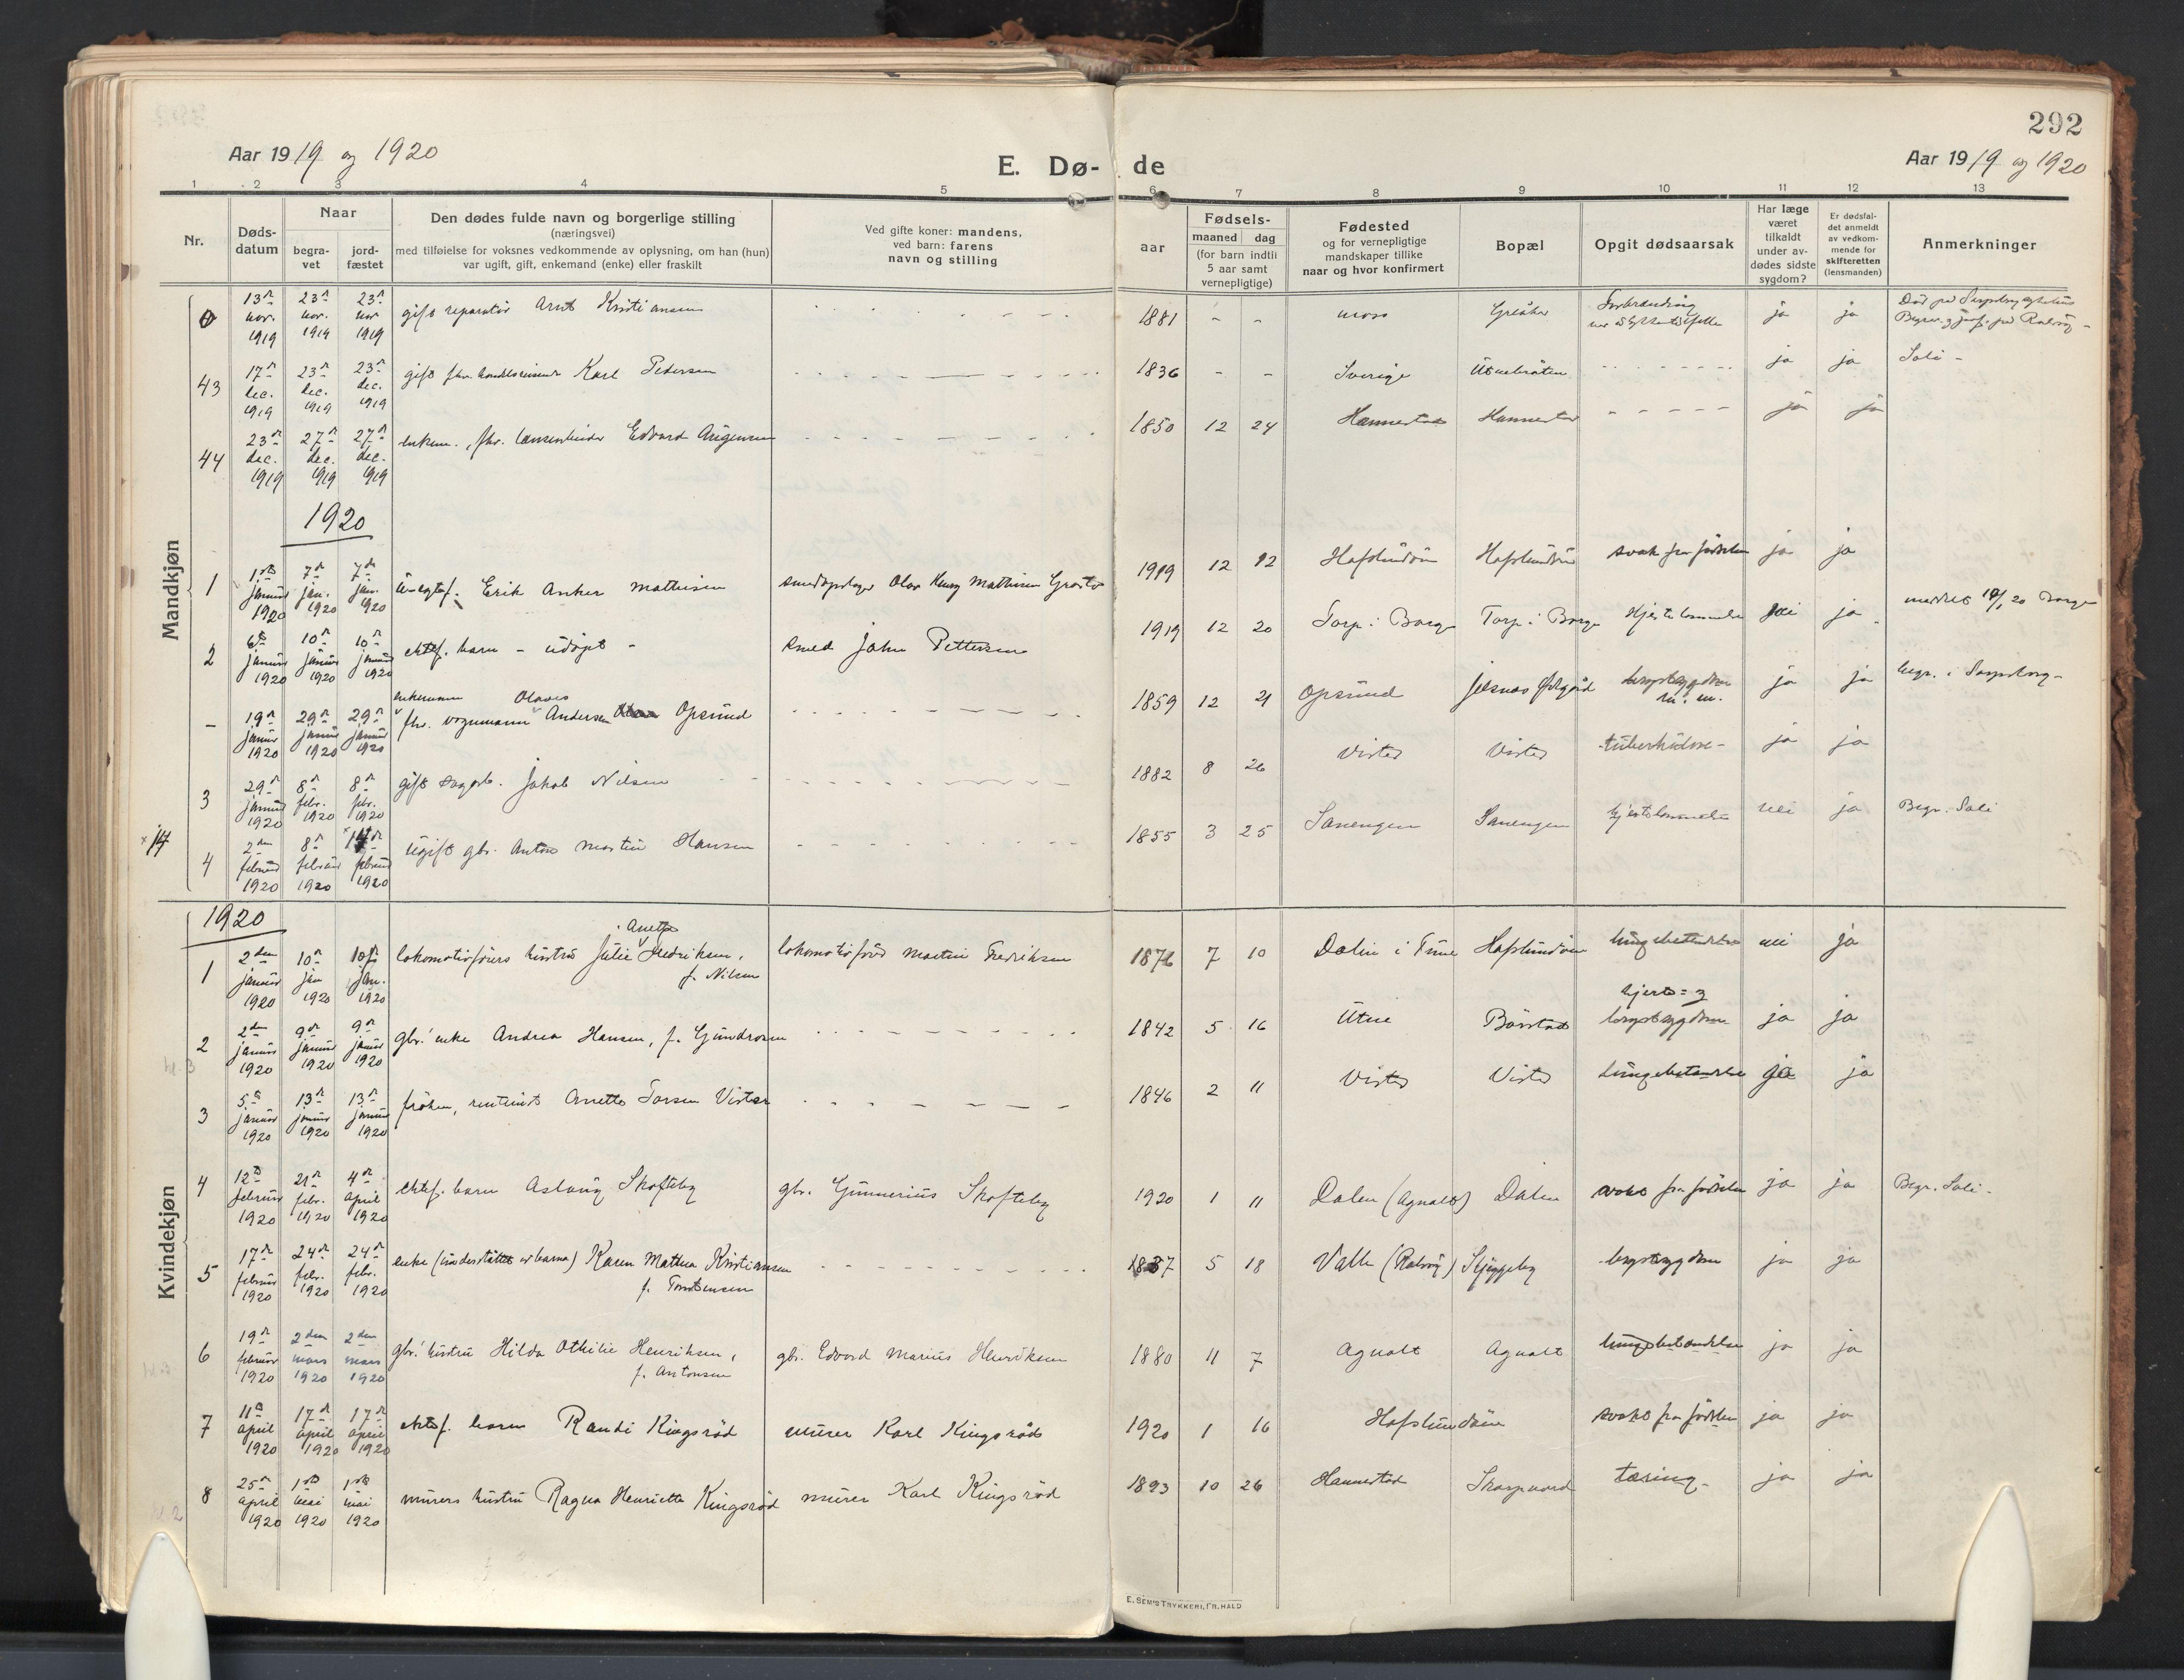 292
Aar 1919 og 1920
E. Dø- de
Aar 1919 og 1920
1 2 3 4 5 6 7 8 9 10 11 12 13
Nr.
Døds-
datum
Naar
begra-
vet
jord-
fæstet
Den dødes fulde navn og borgerlige stilling
(næringsvei)
med tilføielse for voksnes vedkommende av oplysning, om han (hun)
var ugift, gift, enkemand (enke) eller fraskilt
Ved gifte koner: mandens,
ved barn: farens
navn og stilling
Fødsels-
aar
maaned dag
(for barn indtil
5 aar samt
vernepligtige)
Fødested
og for vernepligtige
mandskaper tillike
naar og hvor konfirmert
Bopæl
Opgit dødsaarsak
Har læge
været
tilkaldt
under av-
dødes sidste
sygdom?
Er dødsfal-
det anmeldt
av vedkom-
mende for
skifteretten
(lensmanden)
Anmerkninger
Mandkjøn
0 13de nov. 1919 23de nov. 1919 23de nov 1919 gift reparatør Arnt Kristiansen 1881 - - Moss Greåker Forbrænding ja ja
43 17de dec. 1919 23de dec. 1919 23de dec. 1919 gift fhv. handelsreisende Karl Pedersen 1836 - - Sverige Utnebråten ja ja Soli -
44 23de dec. 1919 27de dec. 1919 27de dec. 1919 enkem., fhv. Edvard 1850 12 24 Hannestad Hannestad ja ja
1920
1 1ste januar 1920 7de jan. 1920 7de jan. 1920 uegtef. Erik Anker Mathisen Olav Henry Mathisen 1919 12 12 Hafslundsøen Hafslundsøen svak fra fødselen ja ja
2 6te januar 1920 10de januar 1920 10de januar 1920 ektef. barn - udøpt - smed John Pettersen 1919 12 20 Torp i Borge Torp i Borge Hjertelammelse nei ja meddelt 19/1 20 Borge
- 19de januar 1920 29de januar 1920 29de januar 1920 enkemann fhv. vognmann Olaves Andersen Opsund 1859 12 21 Opsund brystsygdom m. m. ja ja begr. i Sarpsborg -
3 29de januar 1920 8de febr. 1920 8de febr. 1920 gift sagarb. Jakob Nilsen 1882 8 26 Vister Vister - tuberkulose - ja ja
x 14
4 2den februar 1920 8de februar 1920 x 14de februar 1920 ugift gbr. Anton Martin Hansen 1855 3 25 Sanengen Sanengen hjertelammelse nei ja Begr. Soli
Kvindekjøn
1920
1 2den januar 1920 10de jan 1920 10de jan. 1920 lokomotivførers hustru Julie Anette Fredriksen, f. Nilsen lokomotivfører Martin Fredriksen 1876 7 10 Dalen i Tune Hafslundsøen lungebetændelse nei ja
2 2den januar 1920 9de januar 1920 9de januar 1920 gbr. enke Andrea Hansen, f. Gundrosen 1842 5 16 Utne Borstad hjerte= og brystsygdom ja ja
3 5te januar 1920 13de januar 1920 13de januar 1920 frøken, rentenist Anette Torsen Vister 1846 2 11 Vister Vister Lungebetændelse ja ja
4 12te februar 1920 21de febr. 1920 4de april 1920 ektef. barn Aslaug Skofteby gbr. Gunnerius Skofteby 1920 1 11 Dalen (Agnalt) Dalen svak fra fødselen ja ja Begr. Soli -
5 17de februar 1920 24de febr. 1920 24de febr. 1920 enke (understøttet av barna) Karen Mathea Kristiansen f. Torstensen 1837 5 18 Valle (Rolvsøy) Skjeggeby brystsygdom ja ja
6 19de februar 1920 2den mars 1920 2den mars 1920 gbr. hustru Hilda Othilie Henriksen, f. Antonsen gbr. Edvard Marius Henriksen 1880 11 7 Agnalt Agnalt lungebetændelse ja ja
7 11te april 1920 17de april 1920 17de april 1920 ektef. barn Randi Kingsrød murer Karl Kingsrød 1920 1 16 Hafslundsøen svak fra fødselen ja ja
8 25de april 1920 1ste mai 1920 1ste mai 1920 murers hustru Ragna Henriette Kingsrød murer Karl Kingsrød 1893 10 26 Hannestad Skarpnord tæring - ja ja
E. SEM'S TRYKKERI, FR.HALD